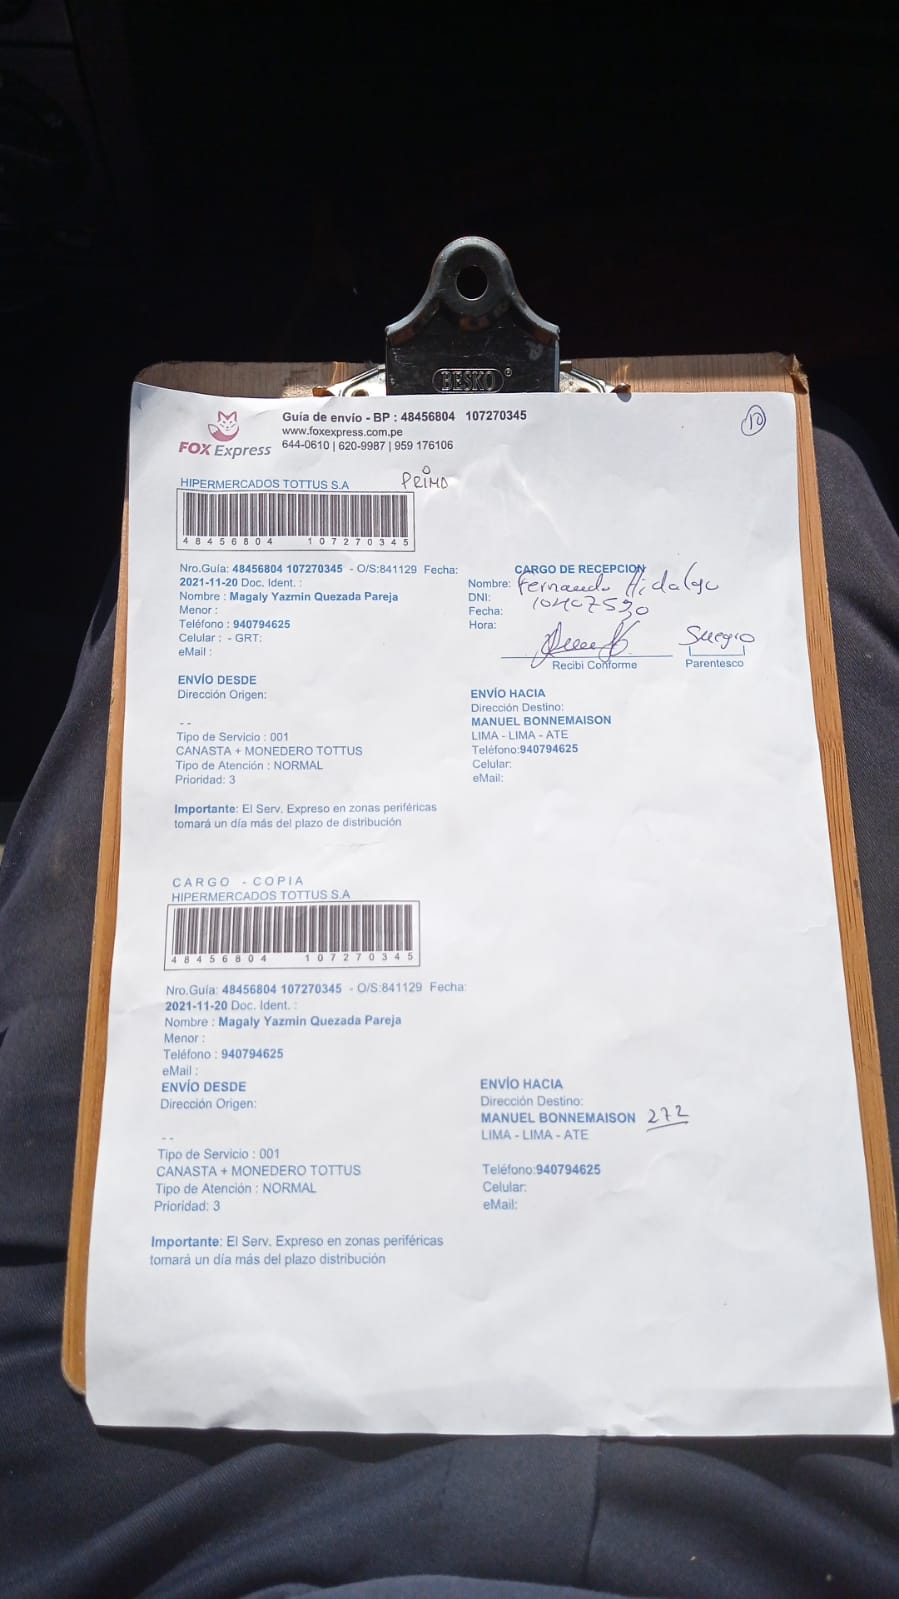 BESKO
FOX Express
Guía de envío - BP : 48456804 107270345
www.foxexpress.com.pe
644-0610 | 620-9987 | 959 176106
10
HIPERMERCADOS TOTTUS S.A
PRIMO
48456804 107270345
Nro.Guía: 48456804 107270345 - O/S:841129 Fecha:
2021-11-20 Doc. Ident. :
Nombre : Magaly Yazmin Quezada Pareja
Menor :
Teléfono : 940794625
Celular : - GRT:
eMail :
CARGO DE RECEPCION
Nombre: Fernando Hidalgo
DNI: 10407530
Fecha:
Hora:
Suegro
Recibi Conforme
Parentesco
ENVÍO DESDE
Dirección Origen:
- -
Tipo de Servicio : 001
CANASTA + MONEDERO TOTTUS
Tipo de Atención : NORMAL
Prioridad: 3
ENVÍO HACIA
Dirección Destino:
MANUEL BONNEMAISON
LIMA - LIMA - ATE
Teléfono:940794625
Celular:
eMail:
Importante: El Serv. Expreso en zonas periféricas
tomará un día más del plazo de distribución
CARGO - COPIA
HIPERMERCADOS TOTTUS S.A
48456804 107270345
Nro.Guía: 48456804 107270345 - O/S:841129 Fecha:
2021-11-20 Doc. Ident. :
Nombre : Magaly Yazmin Quezada Pareja
Menor :
Teléfono : 940794625
eMail :
ENVÍO DESDE
Dirección Origen:
- -
Tipo de Servicio : 001
CANASTA + MONEDERO TOTTUS
Tipo de Atención : NORMAL
Prioridad: 3
ENVÍO HACIA
Dirección Destino:
MANUEL BONNEMAISON 272
LIMA - LIMA - ATE
Teléfono:940794625
Celular:
eMail:
Importante: El Serv. Expreso en zonas periféricas
tomará un día más del plazo distribución